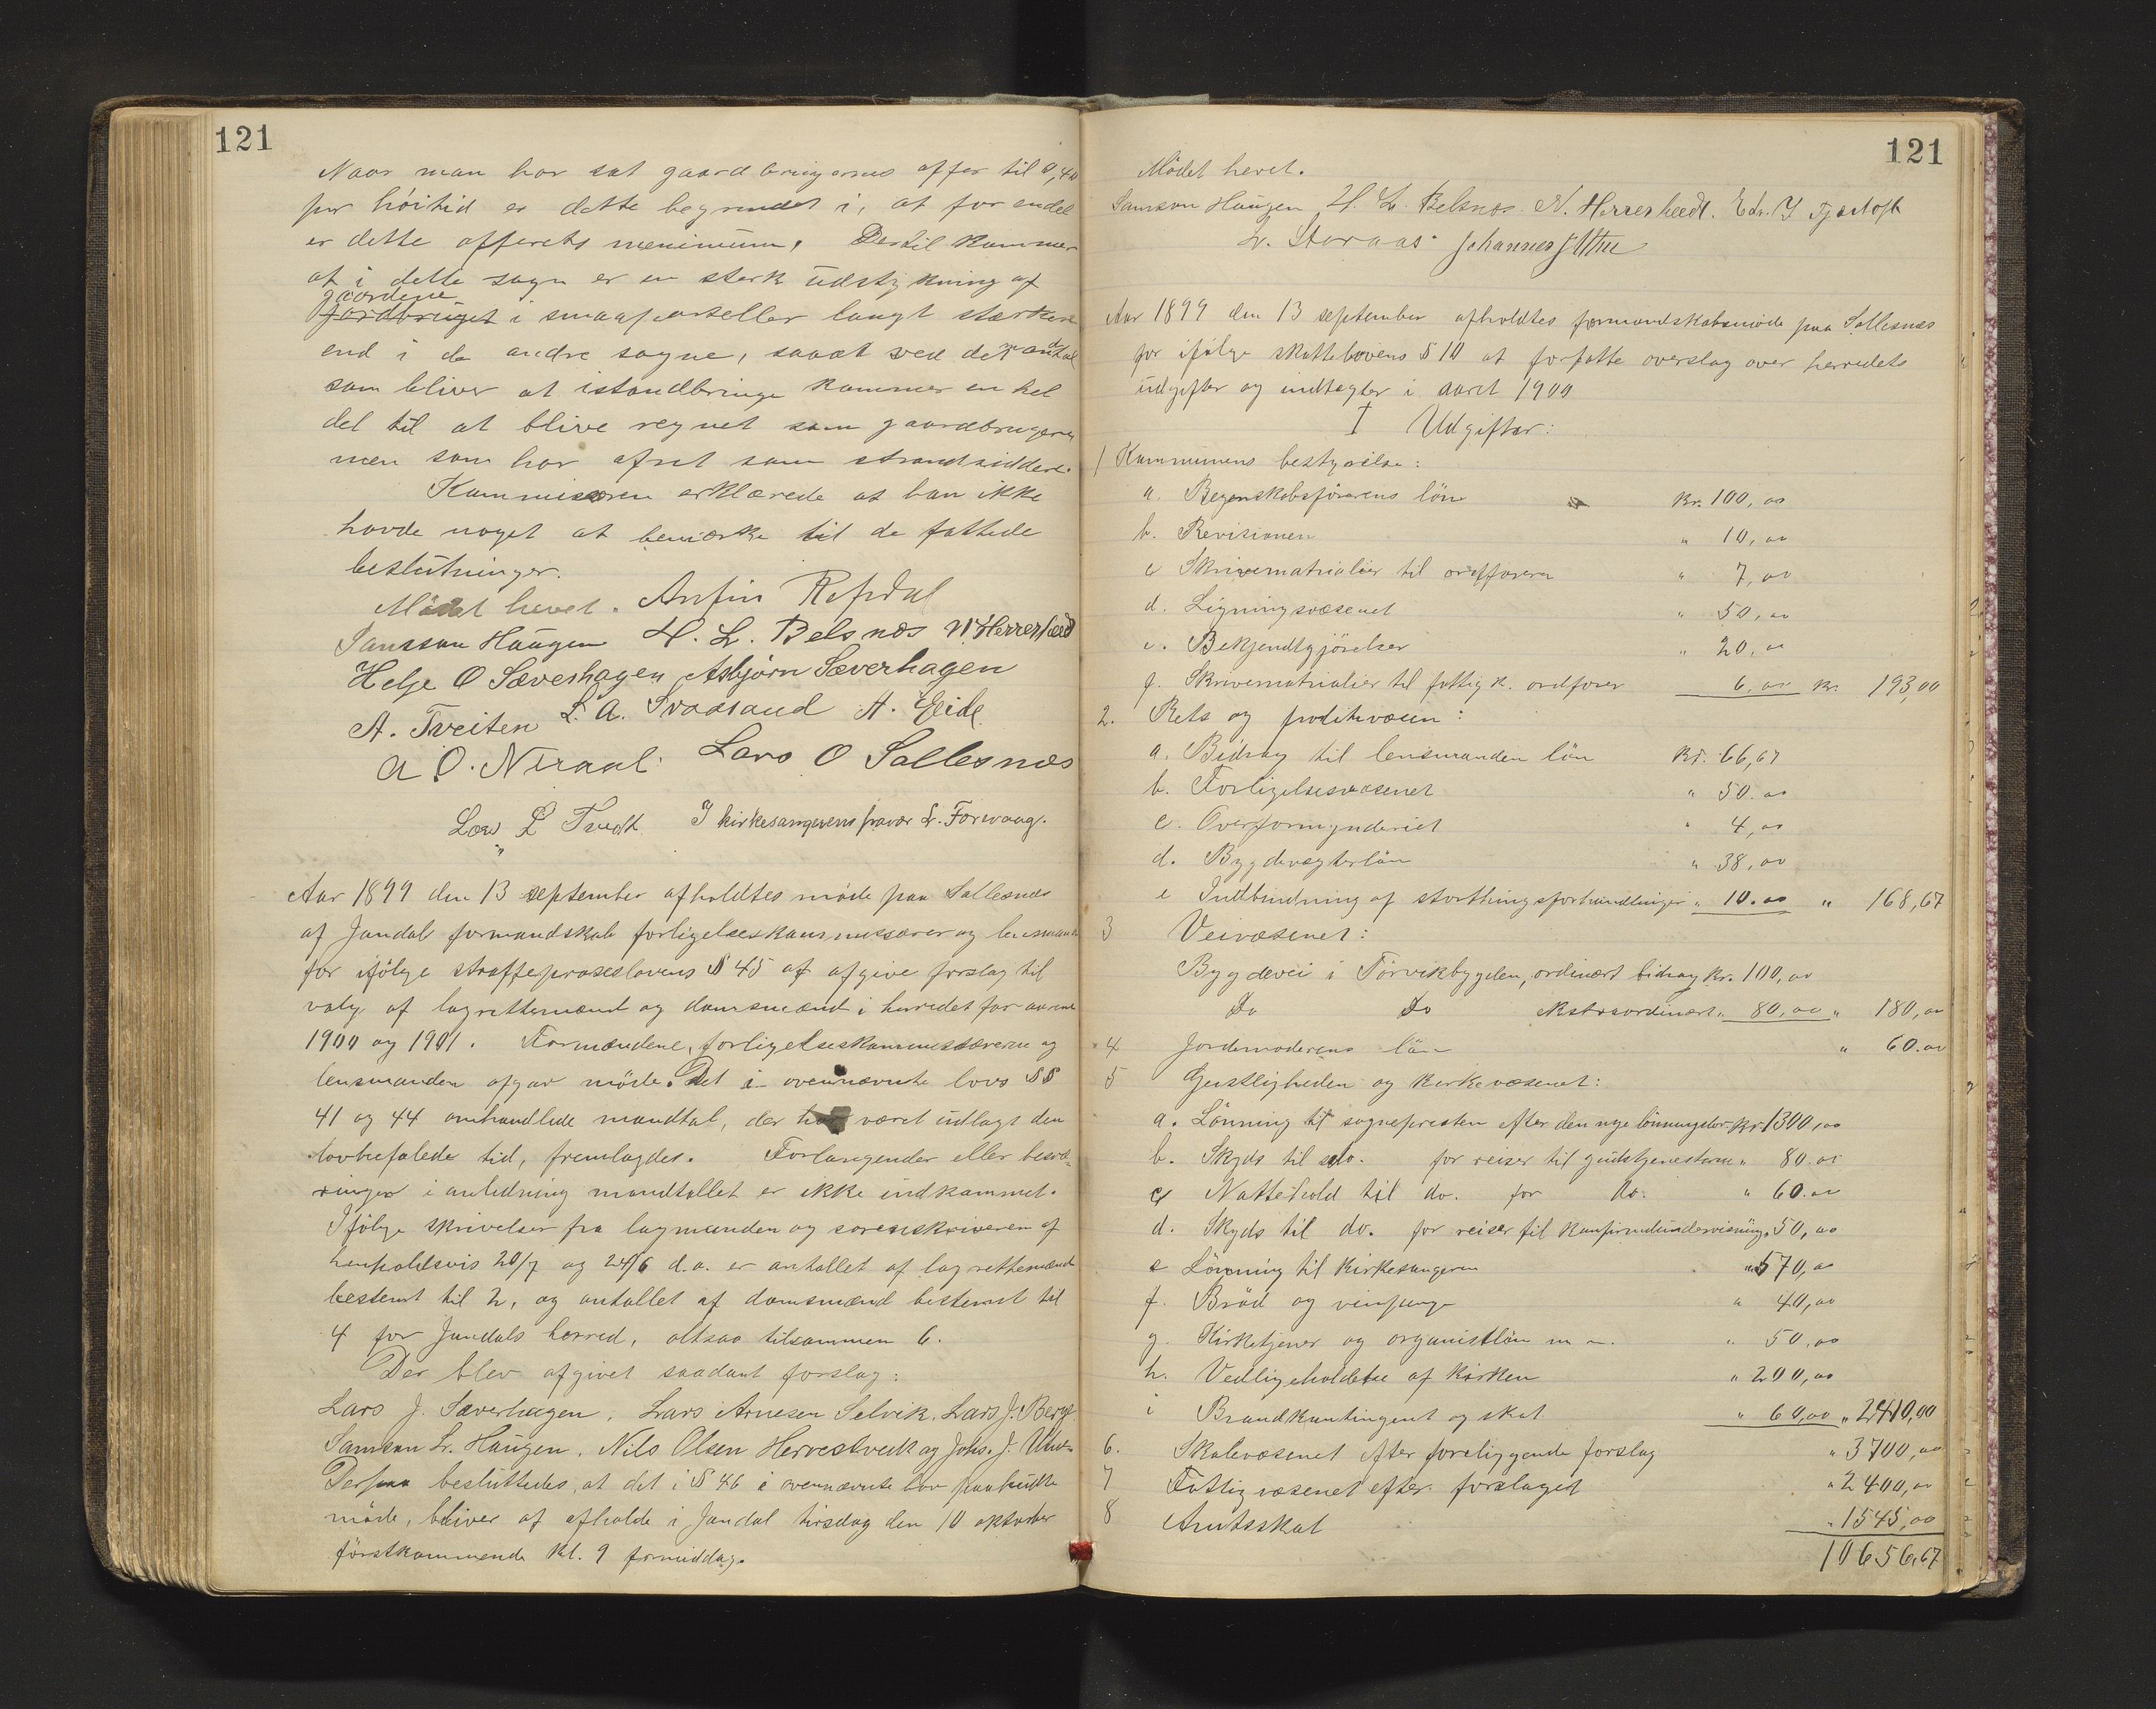 121
Naar man har sat gaardbrugernes offer til 0,40
pr høitid er dette begrundet i, at for endel
er dette offerets menimum. Dertil kommer
at i dette sogn er en sterk udstykning af
gaardene
jordbruget i smaaparseller langt sterkere
end i de andre sogne, saaat ved det mandtal
som bliver at istandbringe kommer en hel
del til at blive regnet som gaardbrugere
men som har ofret som strandsiddere.
Kommissæren erklærede at han ikke
havde noget at bemærke til de fattede
beslutninger.
Mødet hevet. Anfin Refsdal
Samson Haugen H. L. Belsnæs N Herrestved
Helje O Sæverhagen Asbjørn Sæverhagen
A. Tveiten L. A. Svaasand A. Eide
A O. Neraal. Lars O Sallesnæs
Lars L Tvedt I kirkesangerens fravær L. Torvaag.
Aar 1899 den 13 september afholdtes møde paa Sallesnæs
af Jondal formandskab forligelseskommissærer og lensmand
for ifølge straffeproseslovens § 45 at afgive forslag til
valg af lagrettemænd og domsmænd i herredet for aarene
1900 og 1901. Formændene, forligelseskommissærerne og
lensmanden afgav møde. Det i ovennævnte lovs §§
41 og 44 omhandlede mandtal, der har været udlagt den
lovbefalede tid, fremlagdes. Forlangender eller besvæ-
ringer i anledning mandtallet er ikke indkommet.
Ifølge skrivelser fra lagmanden og sorenskriveren af
henholdsvis 20/7 og 24/6 d.a. er antallet af lagrettemænd
bestemt til 2, og antallet af domsmænd bestemt til
4 for Jondals herred, altsaa tilsammen 6.
Der blev afgivet saadant forslag:
Lars J. Sæverhagen, Lars Arnesen Selvik, Lars J. Berge
Samson L. Haugen, Nils Olsen Herrestvedt og Johs. J. Utne
Derpaa besluttedes, at det i § 46 i ovennævnte lov paabudte
møde, bliver at afholde i Jondal tirsdag den 10 oktober
førstkommende kl. 9 formiddag.
121
Mødet hevet.
Samson Haugen H. L. Belsnæs N. Herrestvedt.
L. Storaas Johannes J Utne
Aar 1899 den 13 september afholdtes formandskabsmøde paa Sallesnæs
for ifølge skattelovens § 10 at forfatte overslag over herredets
udgifter og indtægter i aaret 1900
I Udgifter:
1 Kommunens bestyrelse:
a. Regnskabsførerens løn Kr. 100,00
b. Revisionen " 10,00
c Skrivematrialier til ordføreren " 7,00
d. Ligningsvæsenet " 50,00
e. Bekjendtgjørelser " 20,00
f. Skrivematrialier til fattigk. ordfører 6,00 Kr. 193,00
2. Rets og politivæsen:
a. Bidrag til lensmanden løn Kr. 66,67
b. Forligelsesvæsenet " 50.00
c. Overformynderiet " 4,00
d. Bygdevægterløn " 38,00
e Indbindning af storthingsforhandlinger " 10.00 " 168,67
3 Veivæsenet:
Bygdevei i Torvikbygden, ordinært bidrag Kr. 100,00
Do Do ekstraordinært " 80,00 " 180,00
4 Jordemoderens løn " 60.00
5 Geistligheden og kirkevæsenet:
a. Lønning til sognepresten efter den nye lønningslov Kr 1300,00
b. Skyds til do. for reiser til gudstjenesterne " 80.00
c Nattehold til do. for do. " 60.00
d. Skyds til do. for reiser til konfirmdundervisning " 50,00
e Lønning til kirkesangeren " 570,00
f. Brød og vinpenge " 40,00
g. Kirketjener og organistløn m m. " 50,00
h. Vedligeholdelse af kirken " 200,00
i Brandkontingent og skat " 60,00 " 2410,00
6. Skolevæsenet efter foreliggende forslag " 3700,00
7 Fattigvæsenet efter forslaget " 2400,00
8 Amtsskat " 1545,00
10656,67